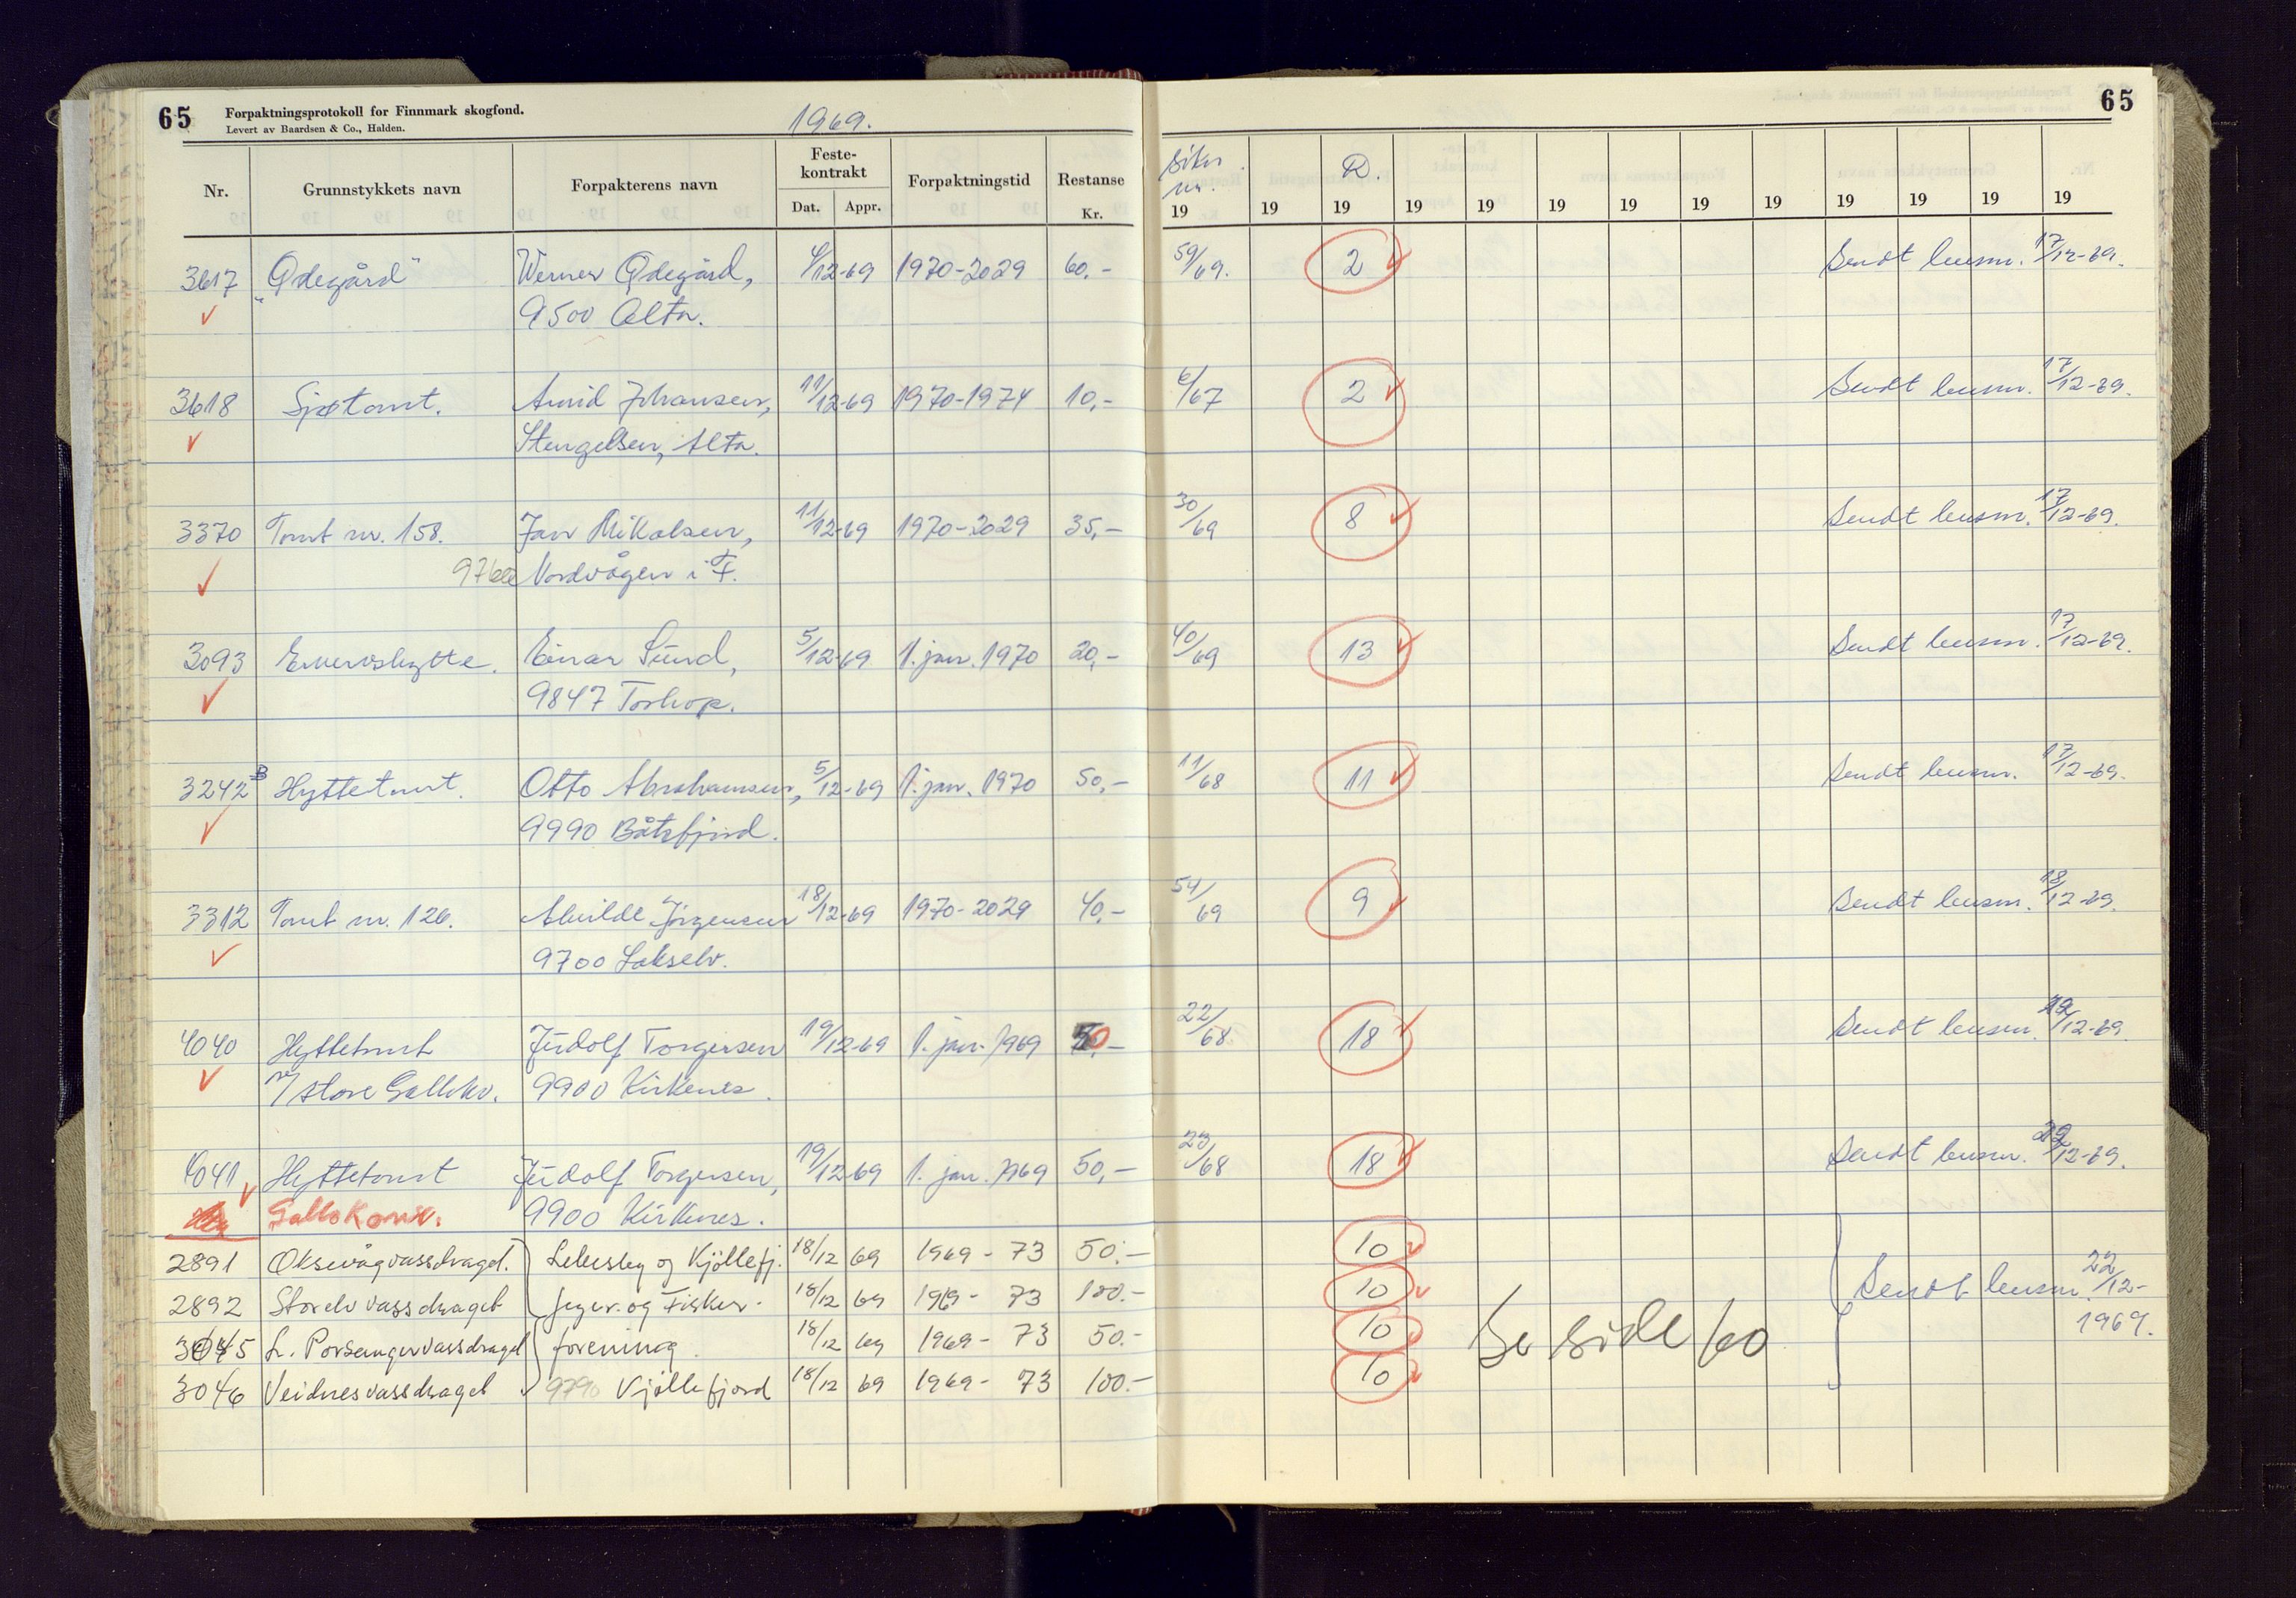 65 Forpaktningsprotokoll for Finnmark skogfond. 65
Levert av Baardsen & Co., Halden.
1969.
Nr. Grunnstykkets navn Forpakterens navn Feste-kontrakt Dat. Appr. Forpaktningstid Restanse Kr. nr. 19 19 R. 19 19 19 19 19 19 19 19 19 19 19
3617 "Ødegård" Werner Ødegård, 1970-2029 60,- 59/69. 2 Sendt lensm. 17/12-69.
9500 Alta.
3618 Sjøtomt. Arvid Johansen, 11/12-69 1970-1974 10,- 6/67 2 Sendt lensm. 17/12-69.
Stengelsen, Alta.
3370 Tomt nr. 158. Jan Mikalsen, 11/12-69 1970-2029 35,- 30/69 8 Sendt lensm. 17/12-69.
Nordvågen i F.
3093 Ervervshytte. Einar Sund, 5/12-69 1. jan. 1970 20,- 40/69 13 Sendt lensm. 17/12-69.
9847 Torhop.
3242 B Hyttetomt. Otto Abrahamsen, 5/12-69 1. jan. 1970 50,- 11/68 11 Sendt lensm. 17/12-69.
9990 Båtsfjord.
3312 Tomt nr. 126. Jørgensen 18/12-69 1970-2029 40,- 54/69 9 Sendt lensm. 18/12-69.
9700 Lakselv.
4040 Hyttetomt Judolf Torgersen 19/12-69 1. jan. 1969 50,- 22/68 18 Sendt lensm. 22/12-69.
v/ store Gallokv. 9900 Kirkenes.
4041 Hyttetomt Judolf Torgersen, 19/12-69 1. jan. 1969 50,- 23/68 18 Sendt lensm. 22/12-69.
9900 Kirkenes.
2891 Oksevågvassdraget. Lebesby og Kjøllefj. 18/12 69 1969 - 73 50.- 10
2892 Storelvvassdraget Jeger- og Fisker- 18/12 69 1969 - 73 100.- 10 Sendt lensm. 22/12-
3045 L. Porsangervassdraget forening 18/12 69 1969 - 73 50.- 10 Se side 60 1969.
3046 Veidnesvassdraget 9790 Kjøllefjord 18/12 69 1969 - 73 100.- 10